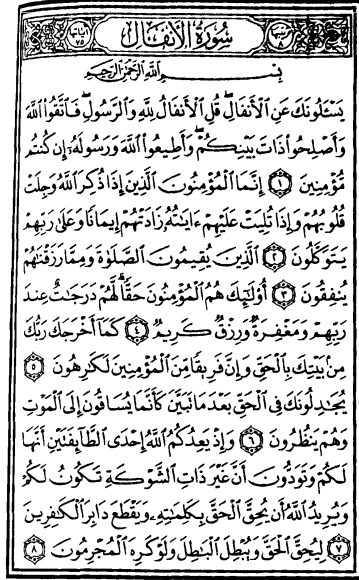 ترتيبها ٨
سُورَةُ الأَنفَالِ
آياتها ٧٥
بِسْمِ اللَّهِ الرَّحْمَٰنِ الرَّحِيمِ
يَسْـَٔلُونَكَ عَنِ ٱلْأَنفَالِۖ قُلِ ٱلْأَنفَالُ لِلَّهِ وَٱلرَّسُولِۖ فَٱتَّقُوا۟ ٱللَّهَ
وَأَصْلِحُوا۟ ذَاتَ بَيْنِكُمْۖ وَأَطِيعُوا۟ ٱللَّهَ وَرَسُولَهُۥٓ إِن كُنتُم
مُّؤْمِنِينَ ١ إِنَّمَا ٱلْمُؤْمِنُونَ ٱلَّذِينَ إِذَا ذُكِرَ ٱللَّهُ وَجِلَتْ
قُلُوبُهُمْ وَإِذَا تُلِيَتْ عَلَيْهِمْ ءَايَٰتُهُۥ زَادَتْهُمْ إِيمَٰنًا وَعَلَىٰ رَبِّهِمْ
يَتَوَكَّلُونَ ٢ ٱلَّذِينَ يُقِيمُونَ ٱلصَّلَوٰةَ وَمِمَّا رَزَقْنَٰهُمْ
يُنفِقُونَ ٣ أُو۟لَٰٓئِكَ هُمُ ٱلْمُؤْمِنُونَ حَقًّاۚ لَّهُمْ دَرَجَٰتٌ عِندَ
رَبِّهِمْ وَمَغْفِرَةٌ وَرِزْقٌ كَرِيمٌ ٤ كَمَآ أَخْرَجَكَ رَبُّكَ
مِنۢ بَيْتِكَ بِٱلْحَقِّ وَإِنَّ فَرِيقًا مِّنَ ٱلْمُؤْمِنِينَ لَكَٰرِهُونَ ٥
يُجَٰدِلُونَكَ فِى ٱلْحَقِّ بَعْدَ مَا تَبَيَّنَ كَأَنَّمَا يُسَاقُونَ إِلَى ٱلْمَوْتِ
وَهُمْ يَنظُرُونَ ٦ وَإِذْ يَعِدُكُمُ ٱللَّهُ إِحْدَى ٱلطَّآئِفَتَيْنِ أَنَّهَا
لَكُمْ وَتَوَدُّونَ أَنَّ غَيْرَ ذَاتِ ٱلشَّوْكَةِ تَكُونُ لَكُمْ
وَيُرِيدُ ٱللَّهُ أَن يُحِقَّ ٱلْحَقَّ بِكَلِمَٰتِهِۦ وَيَقْطَعَ دَابِرَ ٱلْكَٰفِرِينَ
٧ لِيُحِقَّ ٱلْحَقَّ وَيُبْطِلَ ٱلْبَٰطِلَ وَلَوْ كَرِهَ ٱلْمُجْرِمُونَ ٨